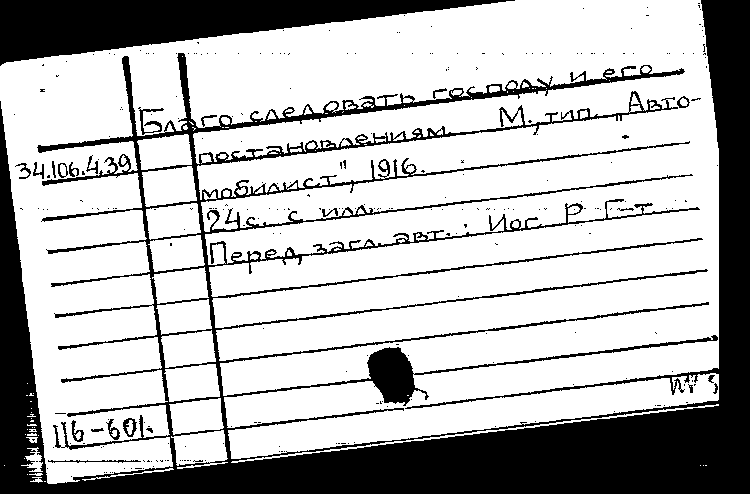 Благо следовать господу и его
34.106.4.39
постановлениям. М., тип. "Авто-
мобилист", 1916.
24 с. с илл.
Перед загл. авт.: Иос. Р. Г-т
116-601.